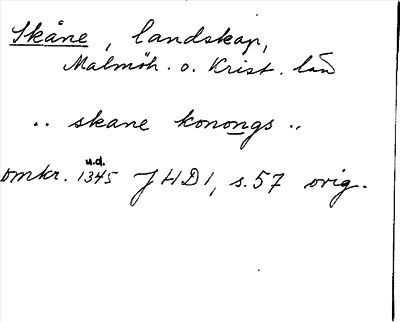 Skåne, landskap,
Malmöh. o. Krist. län
.. skane konongs ..
u.d.
omkr. 1345 JHD 1, s. 57 orig.